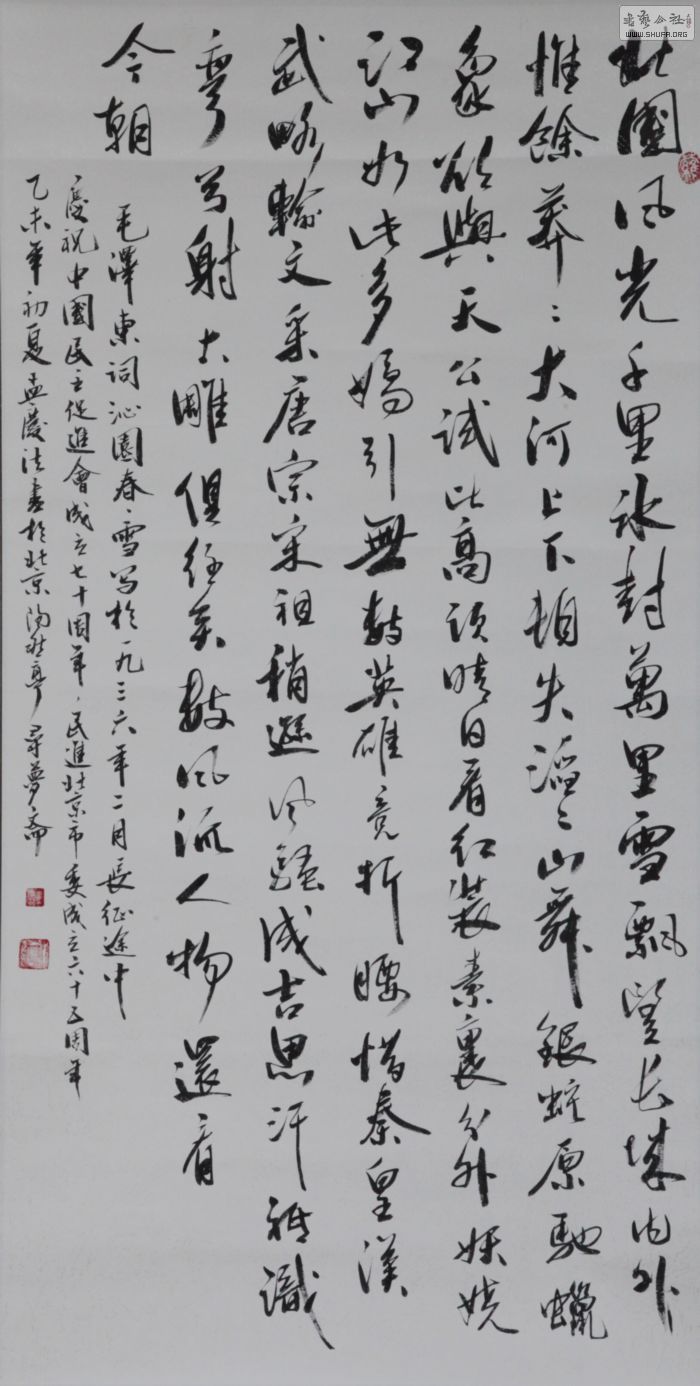 北國風光千里冰封萬里雪飄望長城內外
惟餘莽〻大河上下頓失滔〻山舞銀蛇原馳蠟
象欲與天公試比高須晴日看紅裝素裹分外妖嬈
江山如此多嬌引無數英雄竞折腰惜秦皇漢
武略輸文采唐宗宋祖稍遜風騷成吉思汗祇識
彎弓射大雕俱往矣數風流人物還看
今朝
毛澤東詞沁園春、雪写於一九三六年二月長征途中
慶祝中國民主促進會成立七十周年、民進北京市委成立六十五周年
乙未年初夏孟慶法書於北京陶然亭尋夢齋
書藝公社
WWW.SHUFA.ORG